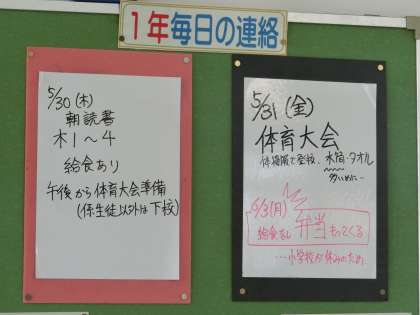 1年毎日の連絡
5/30(木)
朝読書
木1～4
給食あり
午後から体育大会準備
(係生徒以外は下校)
5/31(金)
体育大会
体操服で登校、水筒・タオル
多いめに…
6/3(月)
給食なし 弁当もってくる
…小学校が休みのため